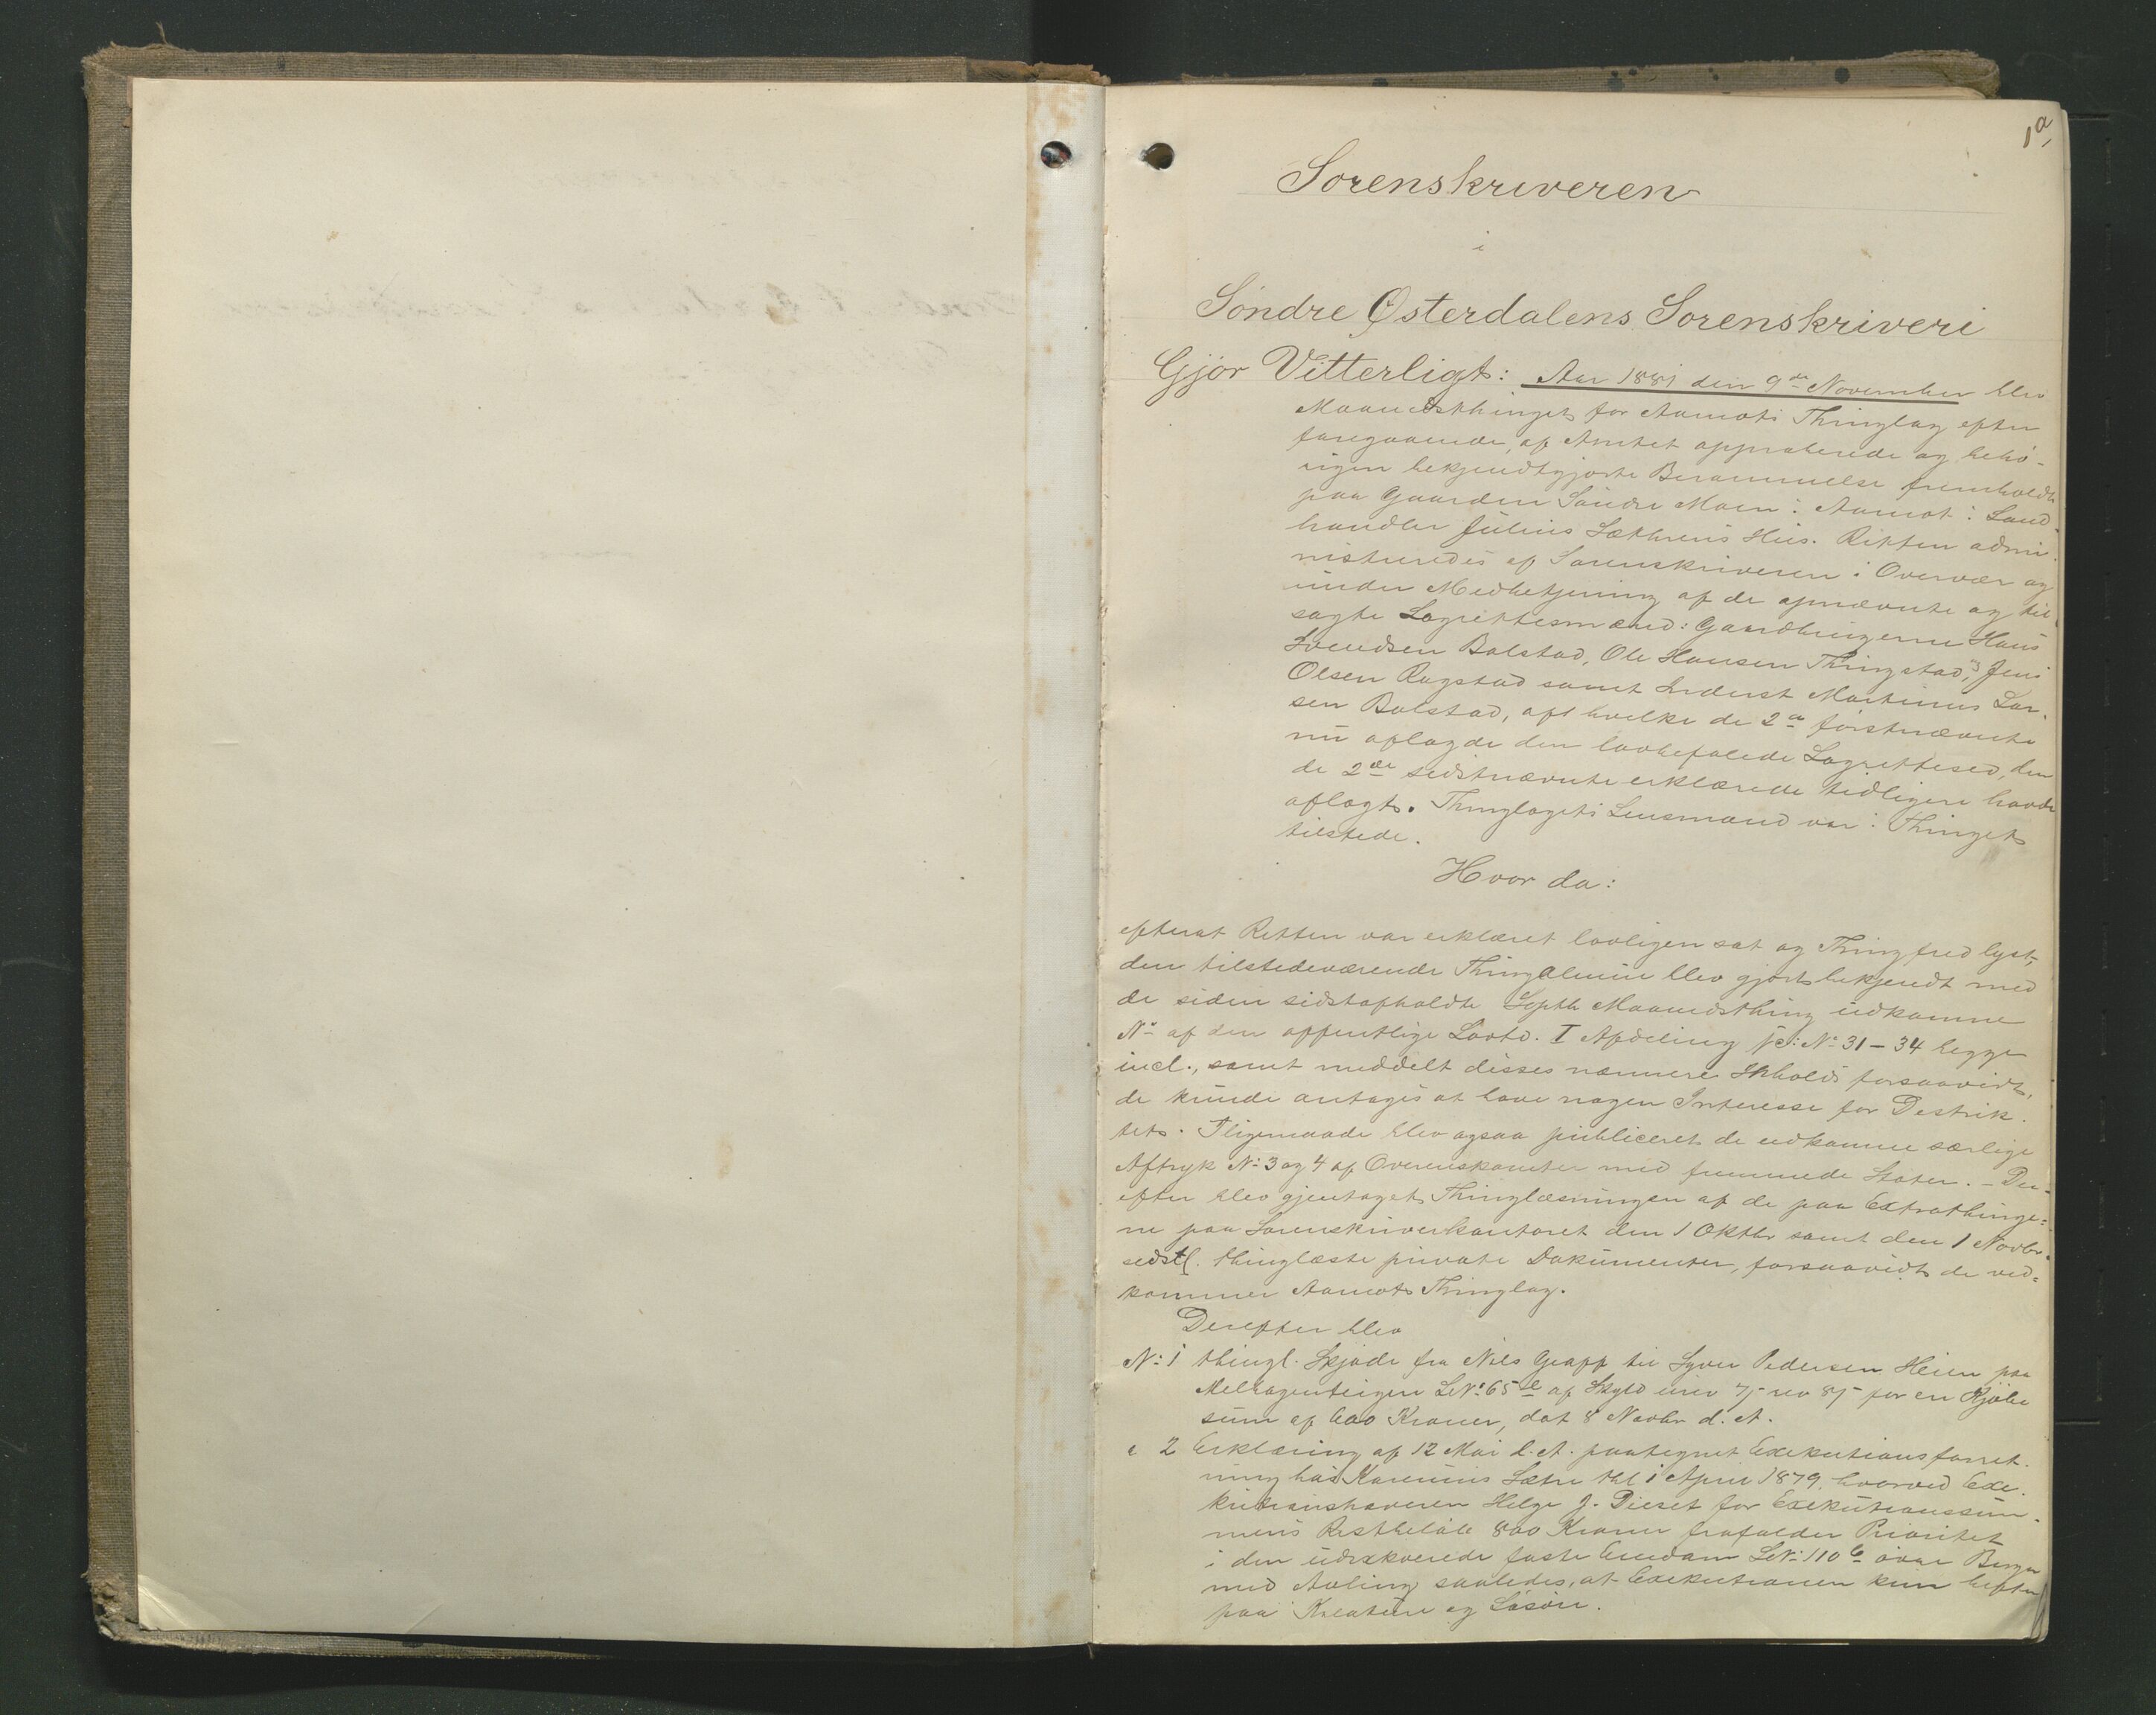 1a,
Sorenskriveren
i
Søndre Østerdalens Sorenskriveri
Gjør Vitterligt: Aar 1881 den 9de November blev
Maanedsthinget for Aamots Thinglag efter
foregaaende, af Amtet approberede og behø-
rigen bekjendtgjorte Berammelse fremholdt
paa Gaarden Søndre Moen i Aamot i Land-
handler Julius Sæthrens Hus. Retten admi-
nistreredes af Sorenskriveren i Overvær og
under Medbetjening af de opnævnte og til-
sagte Lagrettesmænd: Gaardbrugerne Hans
Svendsen Bolstad, Ole Hansen Thingstad, Jens
Olsen Rogstad samt Inderst Martinus Lar-
sen Bolstad, af hvilke de 2de førstnævnte
nu aflagde den lovbefalede Lagrettesed, den
de 2de sidstnævnte erklærede tidligere havde
aflagt. Thinglagets Lensmand var i Thinget
tilstede.
Hvor da:
efterat Retten var erklæret lovligen sat og Thingfred lyst,
den tilstedeværende Thingalmue blev gjort bekjendt med
de siden sidstafholdte Septbr Maanedsthing udkomne
No af den offentlige Lovtd. I Afdeling ɔ: No 31 – 34 begge
incl., samt meddelt disses nærmere Inhold forsaavidt,
de kunde antages at have nogen Interesse for Distrik-
tet. Iligemaade blev ogsaa publiceret de udkomne særlige
Aftryk No 3 og 4 af Overenskomster med fremmede Stater. – Der-
efter blev gjentaget Thinglæsningen af de paa Extrathinge=
ne paa Sorenskriverkontoret den 1 Oktbr samt den 1 Novbr
sidstl. thinglæste private Dokumenter, forsaavidt de ved=
kommer Aamots Thinglag.
Derefter blev
No 1 thingl. Skjøde fra Niels Grapp til Syver Pedersen Heien paa
Melhagenteigen LNo 65 e af Skyld uriv 7 rev 8 for en Kjøbe
sum af 600 Kroner, dat 8 Novbr d. A.
" 2 Erklæring af 12 Mai l. A. paategnet Exekutionsforret-
ning hos Karenius Sætre thl i April 1879, hvorved Exe-
kutionshaveren Helge J. Dieset for Exekutionssum-
mens Restbeløb 800 Kroner frafalder Prioritet
i den udexkverede faste Eiendom LNo 110 b øvre Berger
med Avling saaledes, at Exekutionen kun hefter
paa Kreature og Løsøre.